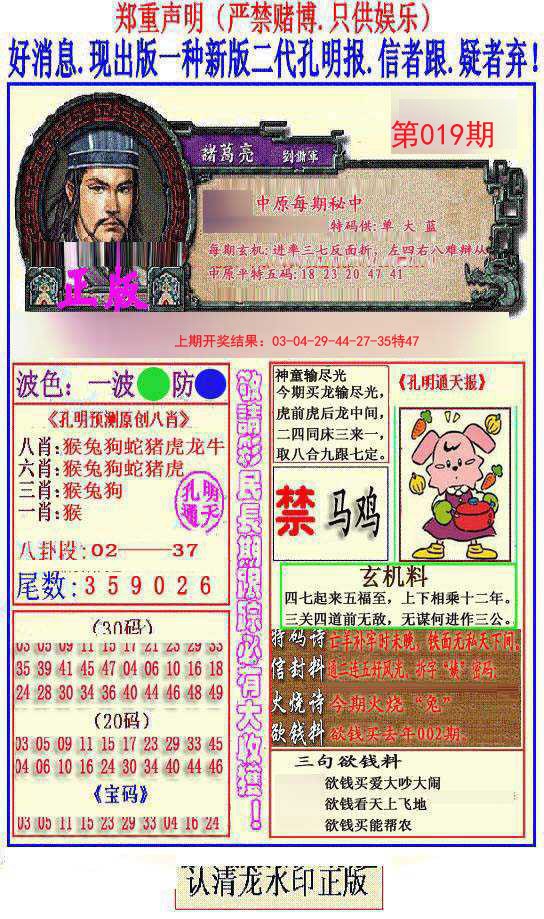 郑重声明（严禁赌博.只供娱乐）
好消息.现出版一种新版二代孔明报.信者跟.疑者弃!
諸葛亮 劉備軍
第019期
中原每期秘中
特码供:单 大 蓝
每期玄机:进率三七反面折，左四右八难辩从
中原平特五码:18 23 20 47 41
正版
上期开奖结果：03-04-29-44-27-35特47
波色：一波 防
《孔明预测原创八肖》
八肖:猴兔狗蛇猪虎龙牛
六肖:猴兔狗蛇猪虎
三肖:猴兔狗
一肖:猴
孔明
通天
八卦段:02——37
尾数:359026
(30码)
03 05 09 11 15 17 23 29 33
35 39 41 45 47 04 06 10 16 18
24 28 30 34 36 40 44 46 48 49
(20码)
03 05 09 11 15 17 23 29 33 45
04 06 10 16 24 30 34 40 44 46
《宝码》
03 05 11 15 23 29 33 04 16 24
敬請彩民長期跟踪必有大收獲！
神童输尽光
今期买龙输尽光，
虎前虎后龙中间，
二四同床三来一，
取八合九跟七定。
《孔明通天报》
禁 马鸡
玄机料
四七起来五福至，上下相乘十二年。
三关四道前无敌，无谋何进作三公。
特码诗 亡羊补牢时未晚，铁面无私天下间。
信封料 通二连五好风光，拆字“姨”密码。
火烧诗 今期火烧“兔”
欲钱料 欲钱买去年002期。
三句欲钱料
欲钱买爱大吵大闹
欲钱看天上飞地
欲钱买能帮农
认清龙水印正版